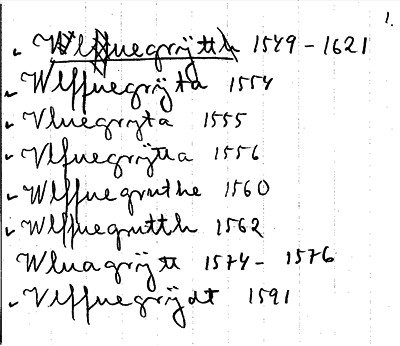 1.
Wlffuegrÿtth 1549 - 1621
Wlffuegrÿta 1554
Vluegrÿta 1555
Vlfuegrÿtta 1556
Wlffuegruthe 1560
Wlffuegrutth 1562
Wluagrÿtt 1574 - 1576
Vlffuegrÿdt 1591